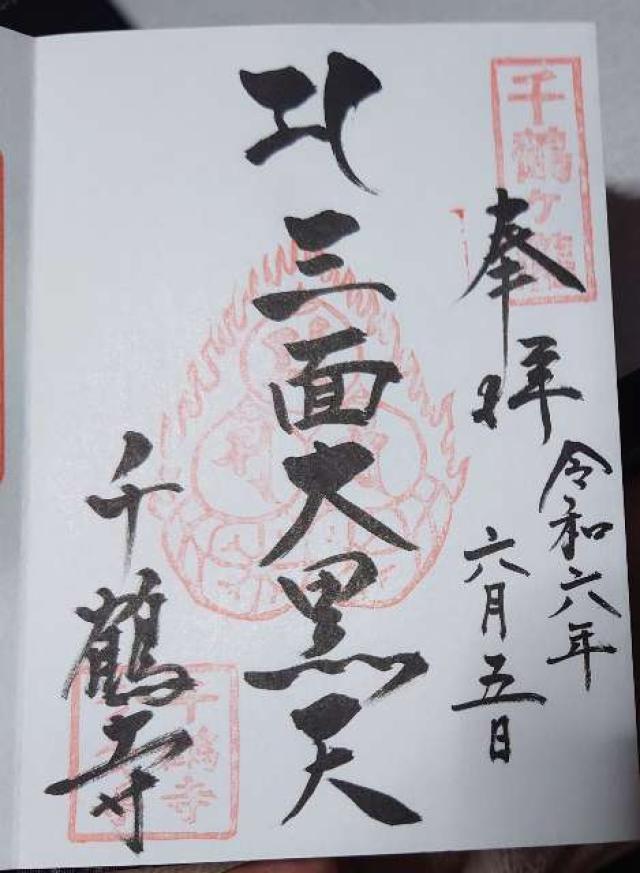 千鶴ヶ
奉拝
令和六年
六月五日
三面大黒天
千鶴寺
千鶴寺